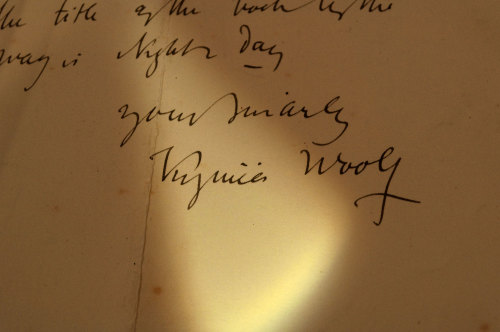 the title of the book by the
way is Night & Day
yours sincerely
Virginia Woolf